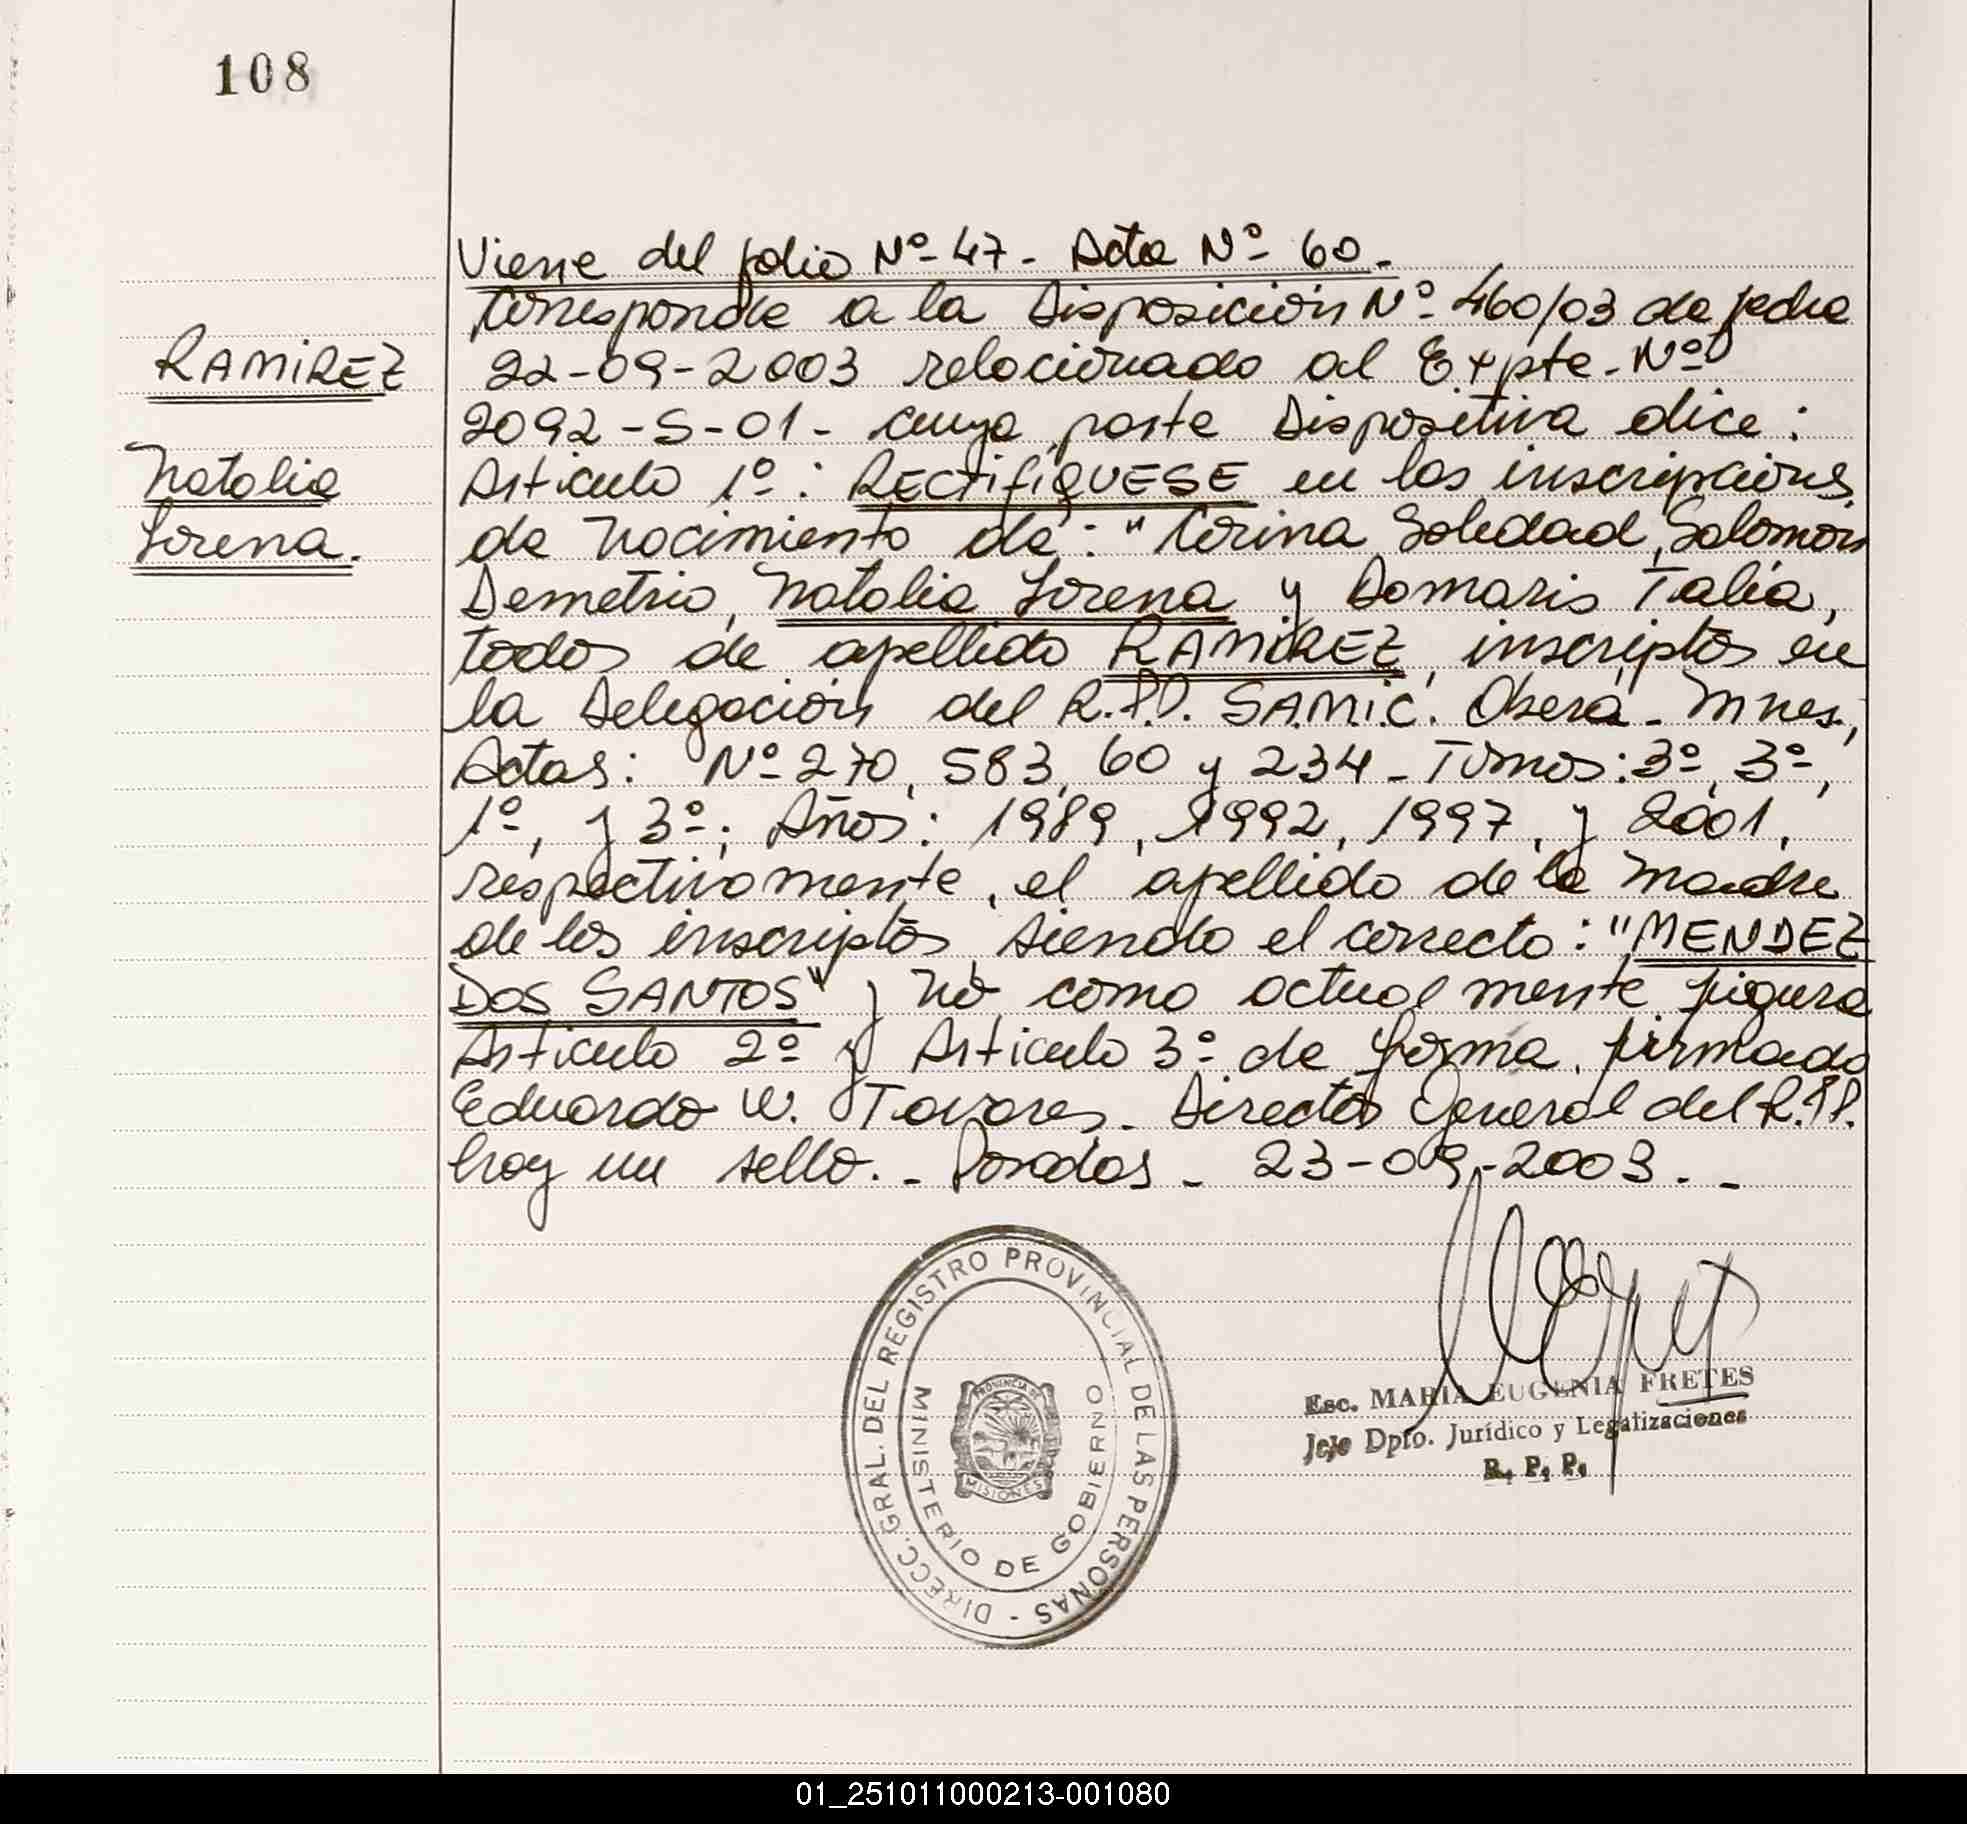 108
Viene del folio Nº 47 - Acta Nº 60.
Corresponde a la Disposición Nº 460/03 de fecha
RAMIREZ
22-09-2003 relacionado al Expte. Nº
2092-S-01 - cuya parte Dispositiva dice:
Natalia
Articulo 1º: RECTIFIQUESE en las inscripciones
Lorena.
de nacimiento de: "Corina Soledad, Salomón
Demetrio, Natalia Lorena y Damaris Talía,
todos de apellido RAMIREZ, inscriptos en
la Delegación del R.P.P. SAMIC. Oberá - Mnes,
Actas: Nº 270, 583, 60 y 234 - Tomos: 3º, 3º,
1º, y 3º; Años: 1989, 1992, 1997, y 2001,
respectivamente, el apellido de la madre
de los inscriptos, siendo el correcto: "MENDEZ
DOS SANTOS" y no como actualmente figura
Articulo 2º y Articulo 3º de forma. firmado
Eduardo W. Tavares. Director General del R.P.P.
hay un sello. - Posadas - 23-09-2003. -
DIRECC. GRAL. DEL REGISTRO PROVINCIAL DE LAS PERSONAS -
MINISTERIO DE GOBIERNO
PROVINCIA DE
MISIONES
Esc. MARIA EUGENIA FRETES
Jefe Dpto. Jurídico y Legalizaciones
R. P. P.
01_251011000213-001080